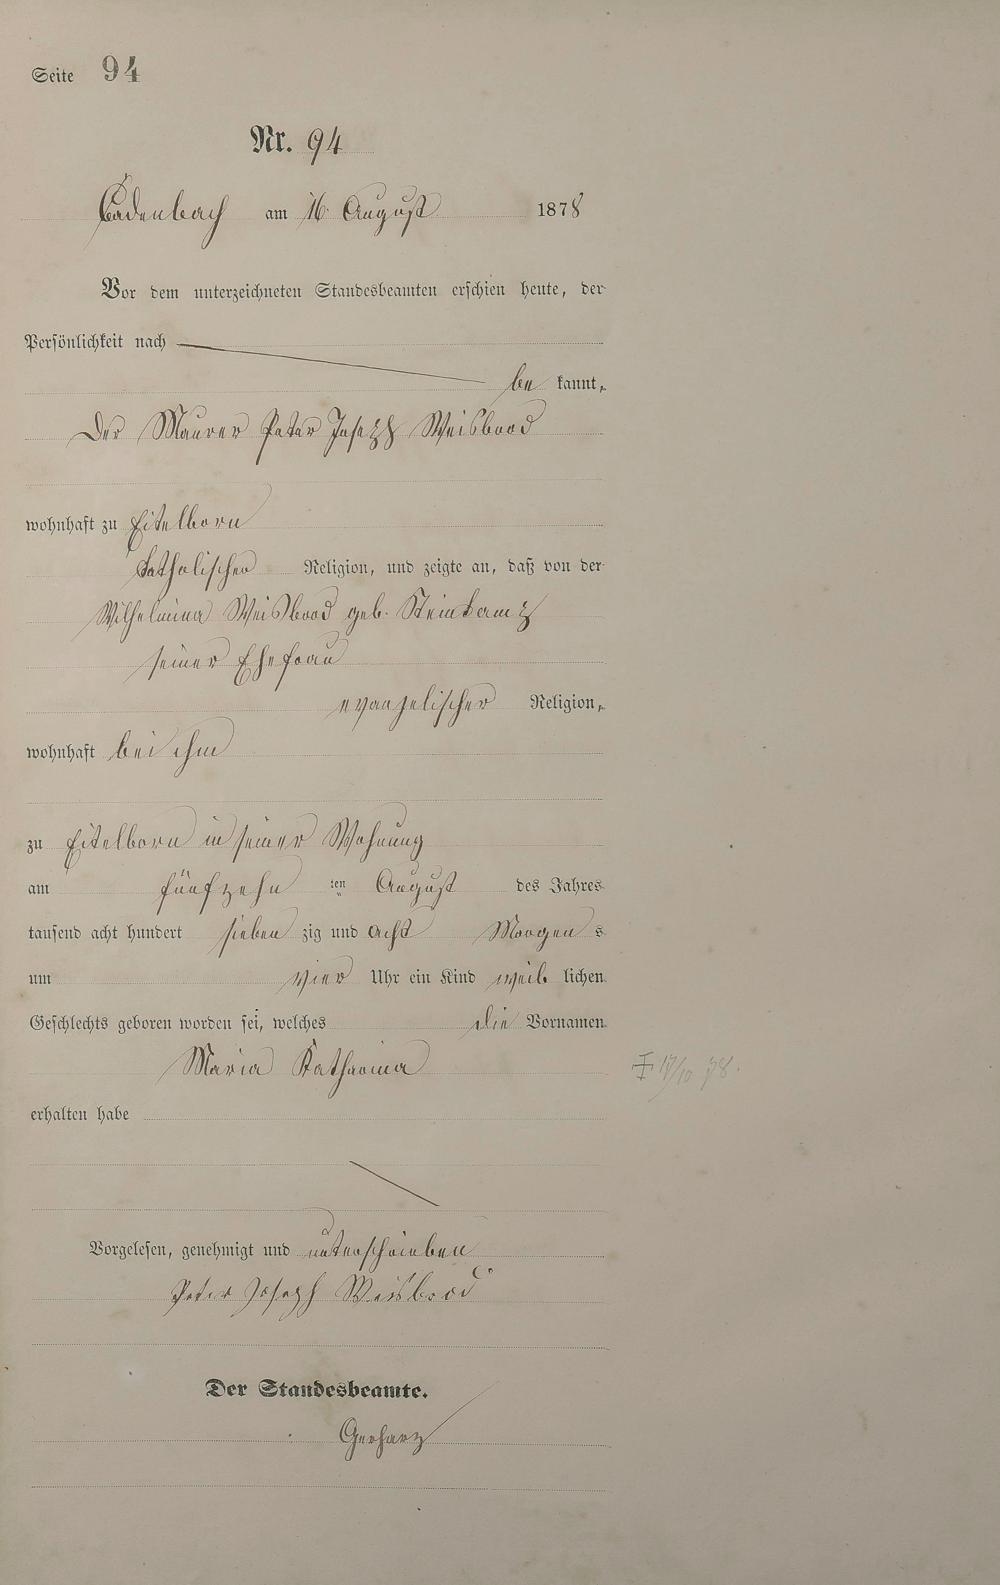 Seite 94
Nr. 94
Cadenbach am 16. August 1878
Vor dem unterzeichneten Standesbeamten erschien heute, der
Persönlichkeit nach
be kannt,
Der Maurer Peter Joseph Weisbrod
wohnhaft zu Eitelborn
katholischer Religion, und zeigte an, daß von der
Wilhelmina Weisbrod geb. Steinkamp
seiner Ehefrau
evangelischer Religion,
wohnhaft bei ihm
zu Eitelborn in seiner Wohnung
am fünfzehn ten August des Jahres
tausend acht hundert sieben zig und acht Morgen s
um vier Uhr ein Kind weib lichen
Geschlechts geboren worden sei, welches die Vornamen
Maria Katharina
erhalten habe
Vorgelesen, genehmigt und unterschrieben
Peter Joseph Weisbrod
Der Standesbeamte.
Gerharz